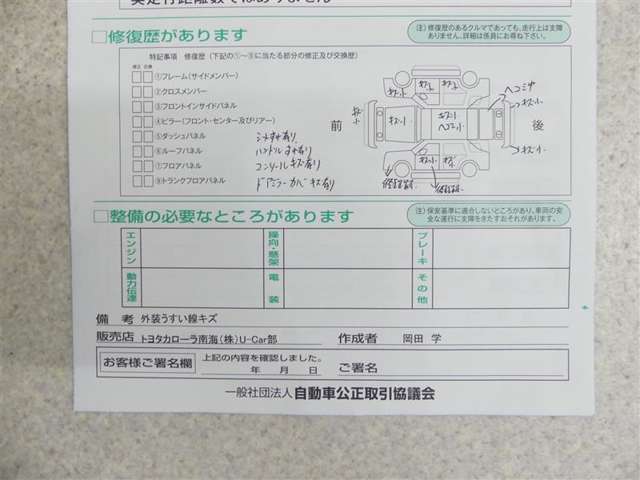 実走行距離数ではありません
□修復歴があります
注）修復歴のあるクルマであっても、走行上は支障ありません。詳細は係員にお尋ね下さい。
特記事項 修復歴（下記の①～⑨に当たる部分の修正及び交換歴）
修正 交換
①フレーム（サイドメンバー）
②クロスメンバー
③フロントインサイドパネル
④ピラー（フロント・センター及びリアー）
⑤ダッシュパネル
⑥ルーフパネル
⑦フロアパネル
⑨トランクフロアパネル
シートすれ有り
ハンドルすれ有り
コンソールキズ有り
ドアミラーカバーキズ有り
前
後
キズ小
キズ小
キズ小
ヘコミ小
キズ小
キズ小
キズ小
□整備の必要なところがあります
注）保安基準に適合しないところがあり、車両の安全な運行に支障をきたすおそれがあります。
エンジン
操向・懸架
ブレーキ
動力伝達
電装
その他
備考 外装うすい線キズ
販売店 トヨタカローラ南海（株）U-Car部 作成者 岡田 学
お客様ご署名欄
上記の内容を確認しました。
年 月 日 ご署名
一般社団法人 自動車公正取引協議会